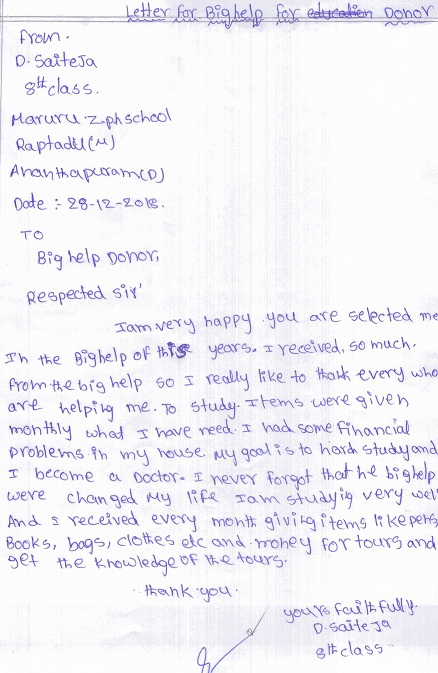 Letter for Bighelp for education Donor
From.
D. Saiteja
8th class.
Maruru. Z.ph school
Raptadu(M)
Ananthapuram(D)
Date :- 28-12-2018.
TO
Big help Donor,
Respected sir'
I am very happy you are selected me
In the Bighelp of this years. I received, so much.
From the big help so I really like to thank every who
are helping me. To study. Items were given
monthly what I have need. I had some Financial
problems in my house My goal is to hard study and
I become a Doctor. I never forgot that he big help
were changed My life I am studyig very well
And I received every month giving items like pens
Books, bags, clothes etc and money for tours and
get the knowledge of the tours.
. thank you.
yours faithfully.
D. Saiteja
8th class